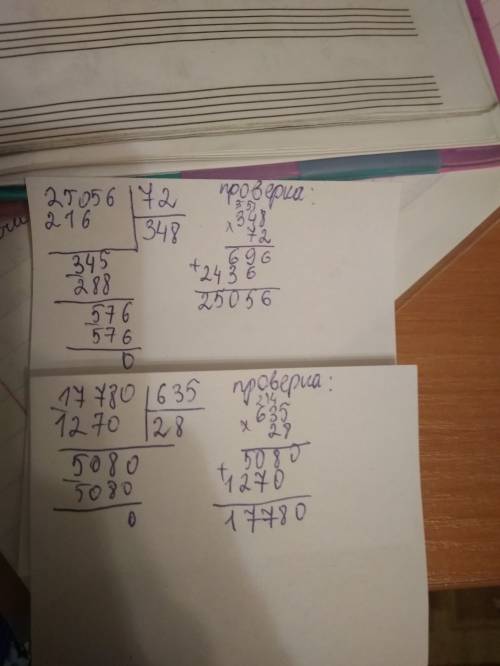 25056 72
216 348
345
288
576
576
0
проверка:
35
348
× 72
696
+
2436
25056
17780 635
1270 28
5080
5080
0
проверка:
214
635
× 28
5080
+
1270
17780